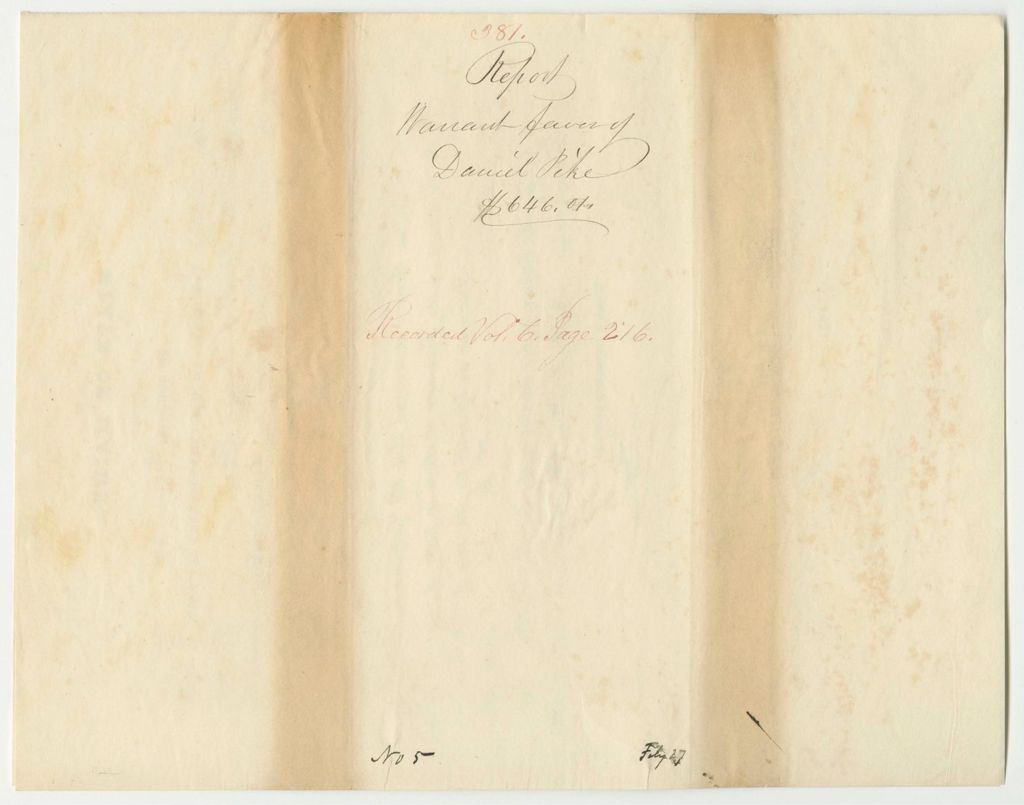 381.
Report
Warrant favor of
Daniel Pike
$646.
Recorded Vol. 6. Page 216.
No 5